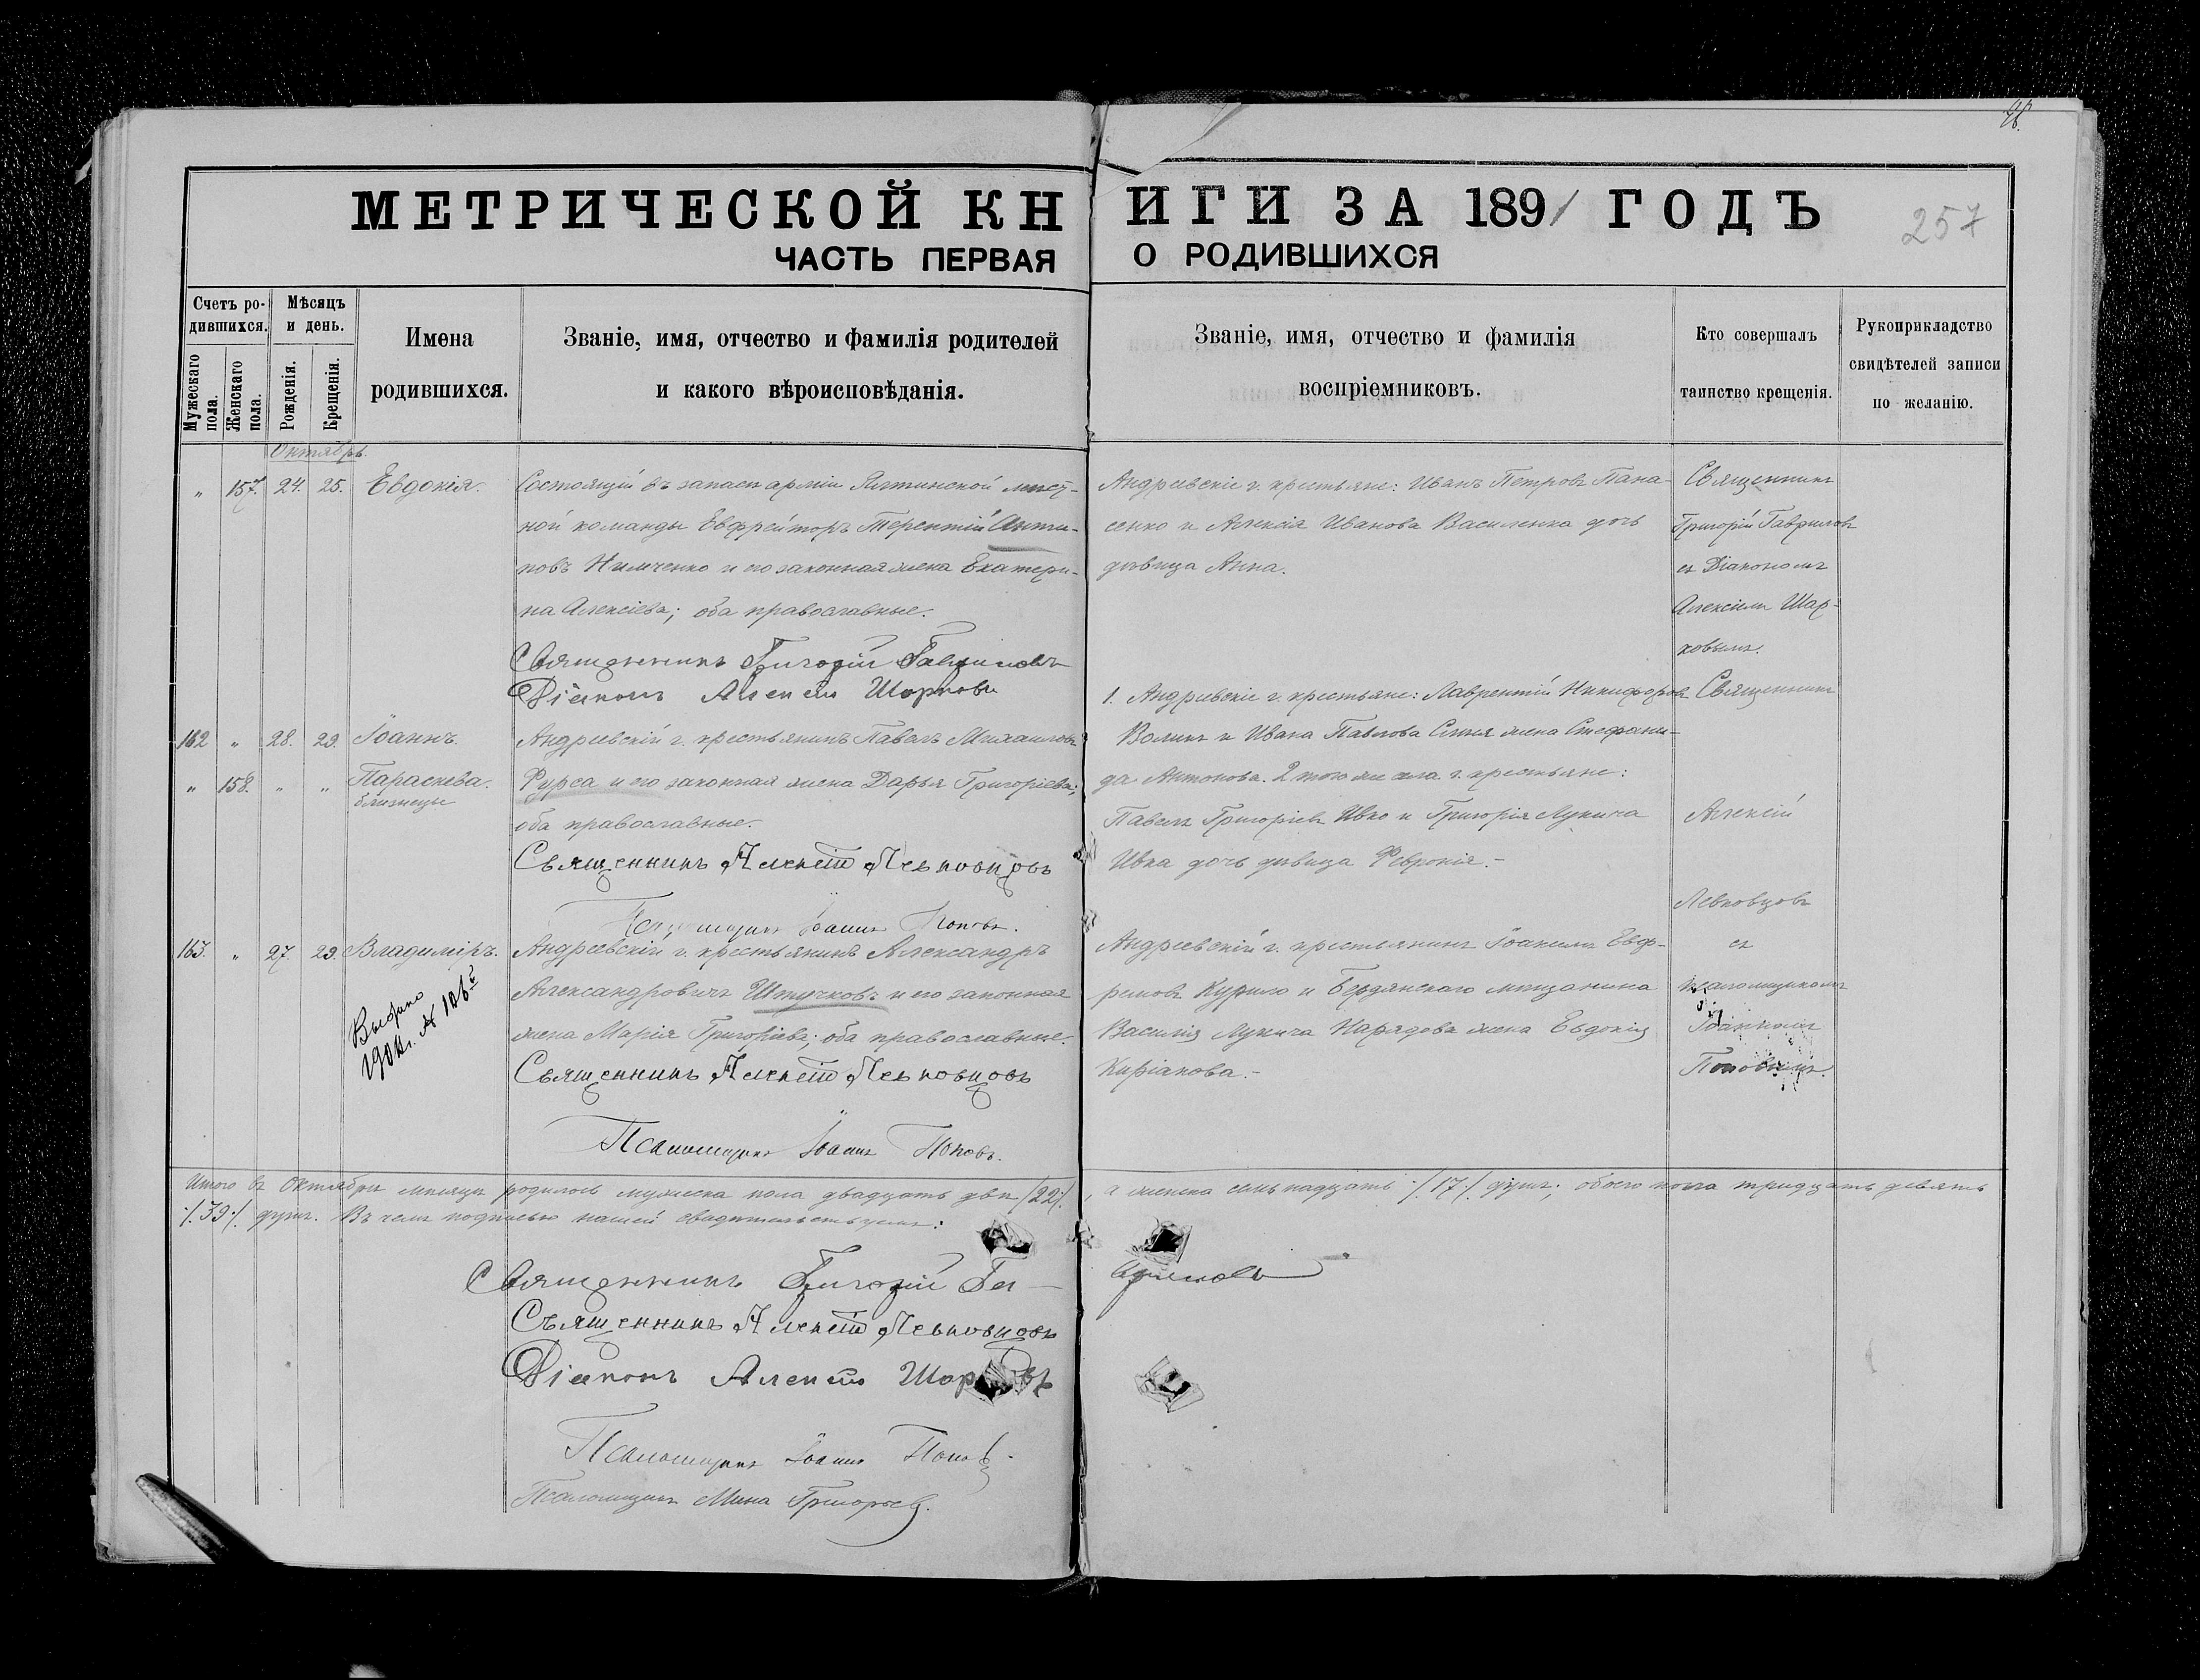 МЕТРИЧЕСКОЙ КНИГИ ЗА 1891 ГОДЪ
257
ЧАСТЬ ПЕРВАЯ О РОДИВШИХСЯ
Счетъ родившихся.
Мужескаго пола.
Женскаго пола.
Мѣсяцъ и день.
Рожденія.
Крещенія.
Имена
родившихся.
Званіе, имя, отчество и фамилія родителей
и какого вѣроисповѣданія.
Званіе, имя, отчество и фамилія
воспріемниковъ.
Кто совершалъ
таинство крещенія.
Рукоприкладство
свидѣтелей записи
по желанію.
Октябрь.
" 157. 24. 25. Евдокія.
Состоящій въ запасѣ арміи Ялтинской мѣст-
ной команды Евфрейторъ Терентій Анти-
повъ Нимченко и его законная жена Екатери-
на Алексіева; оба православные.
Священникъ Григорій Гавриловъ
Діаконъ Алексій Шарковъ
Андреевскіе г. крестьяне: Иванъ Петровъ Пана-
сенко и Алексія Иванова Василенка дочь
дѣвица Анна.
Священникъ
Григорій Гавриловъ
съ Діакономъ
Алексіемъ Шар-
ковымъ.
162 " 28. 29. Іоаннъ.
" 158. " " Параскева.
близнецы
Андреевскій г. крестьянинъ Павелъ Михаиловъ
Фурса и его законная жена Дарья Григоріева;
оба православные.
Священникъ Алексій Левковцовъ
Псаломщикъ Іоаннъ Поповъ.
1. Андреевскіе г. крестьяне: Лаврентій Никифоровъ
Воликъ и Ивана Павлова жена Стефани-
да Антонова. 2 того же села г. крестьяне:
Павелъ Григоріевъ Ивко и Григорія Лукича
Ивка дочь дѣвица Февронія.-
Священникъ
Алексій
Левковцовъ
съ
псаломщикомъ
Іоанномъ
Поповымъ.
163. " 27. 29. Владиміръ.
Выдано
Андреевскій г. крестьянинъ Александръ
Александровичъ Штучковъ и его законная
жена Марія Григоріева; оба православные.
Священникъ Алексій Левковцовъ
Псаломщикъ Іоаннъ Поповъ.
Андреевскій г. крестьянинъ Іоакимъ Евф-
ремовъ Курило и Бердянскаго мѣщанина
Василія Лукича Нарядова жена Евдокія
Киріакова.-
Итого въ Октябрѣ мѣсяцѣ родилось мужеска пола двадцать два /22/, а женска семьнадцать /.17./ душъ; обоего пола тридцать девять
/.39./ душъ. Въ чемъ подписью нашей свидѣтельствуемъ:
Священникъ Григорій Гавриловъ
Священникъ Алексій Левковцовъ
Діаконъ Алексій Шарковъ
Псаломщикъ Іоаннъ Поповъ.
Псаломщикъ Мина Григорьевъ.